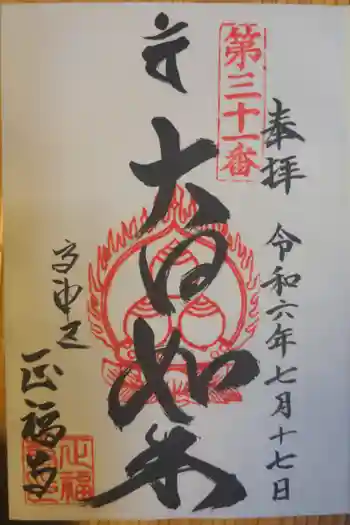 第三十一番
奉拝
令和六年七月十七日
大日如来
正福寺
正福